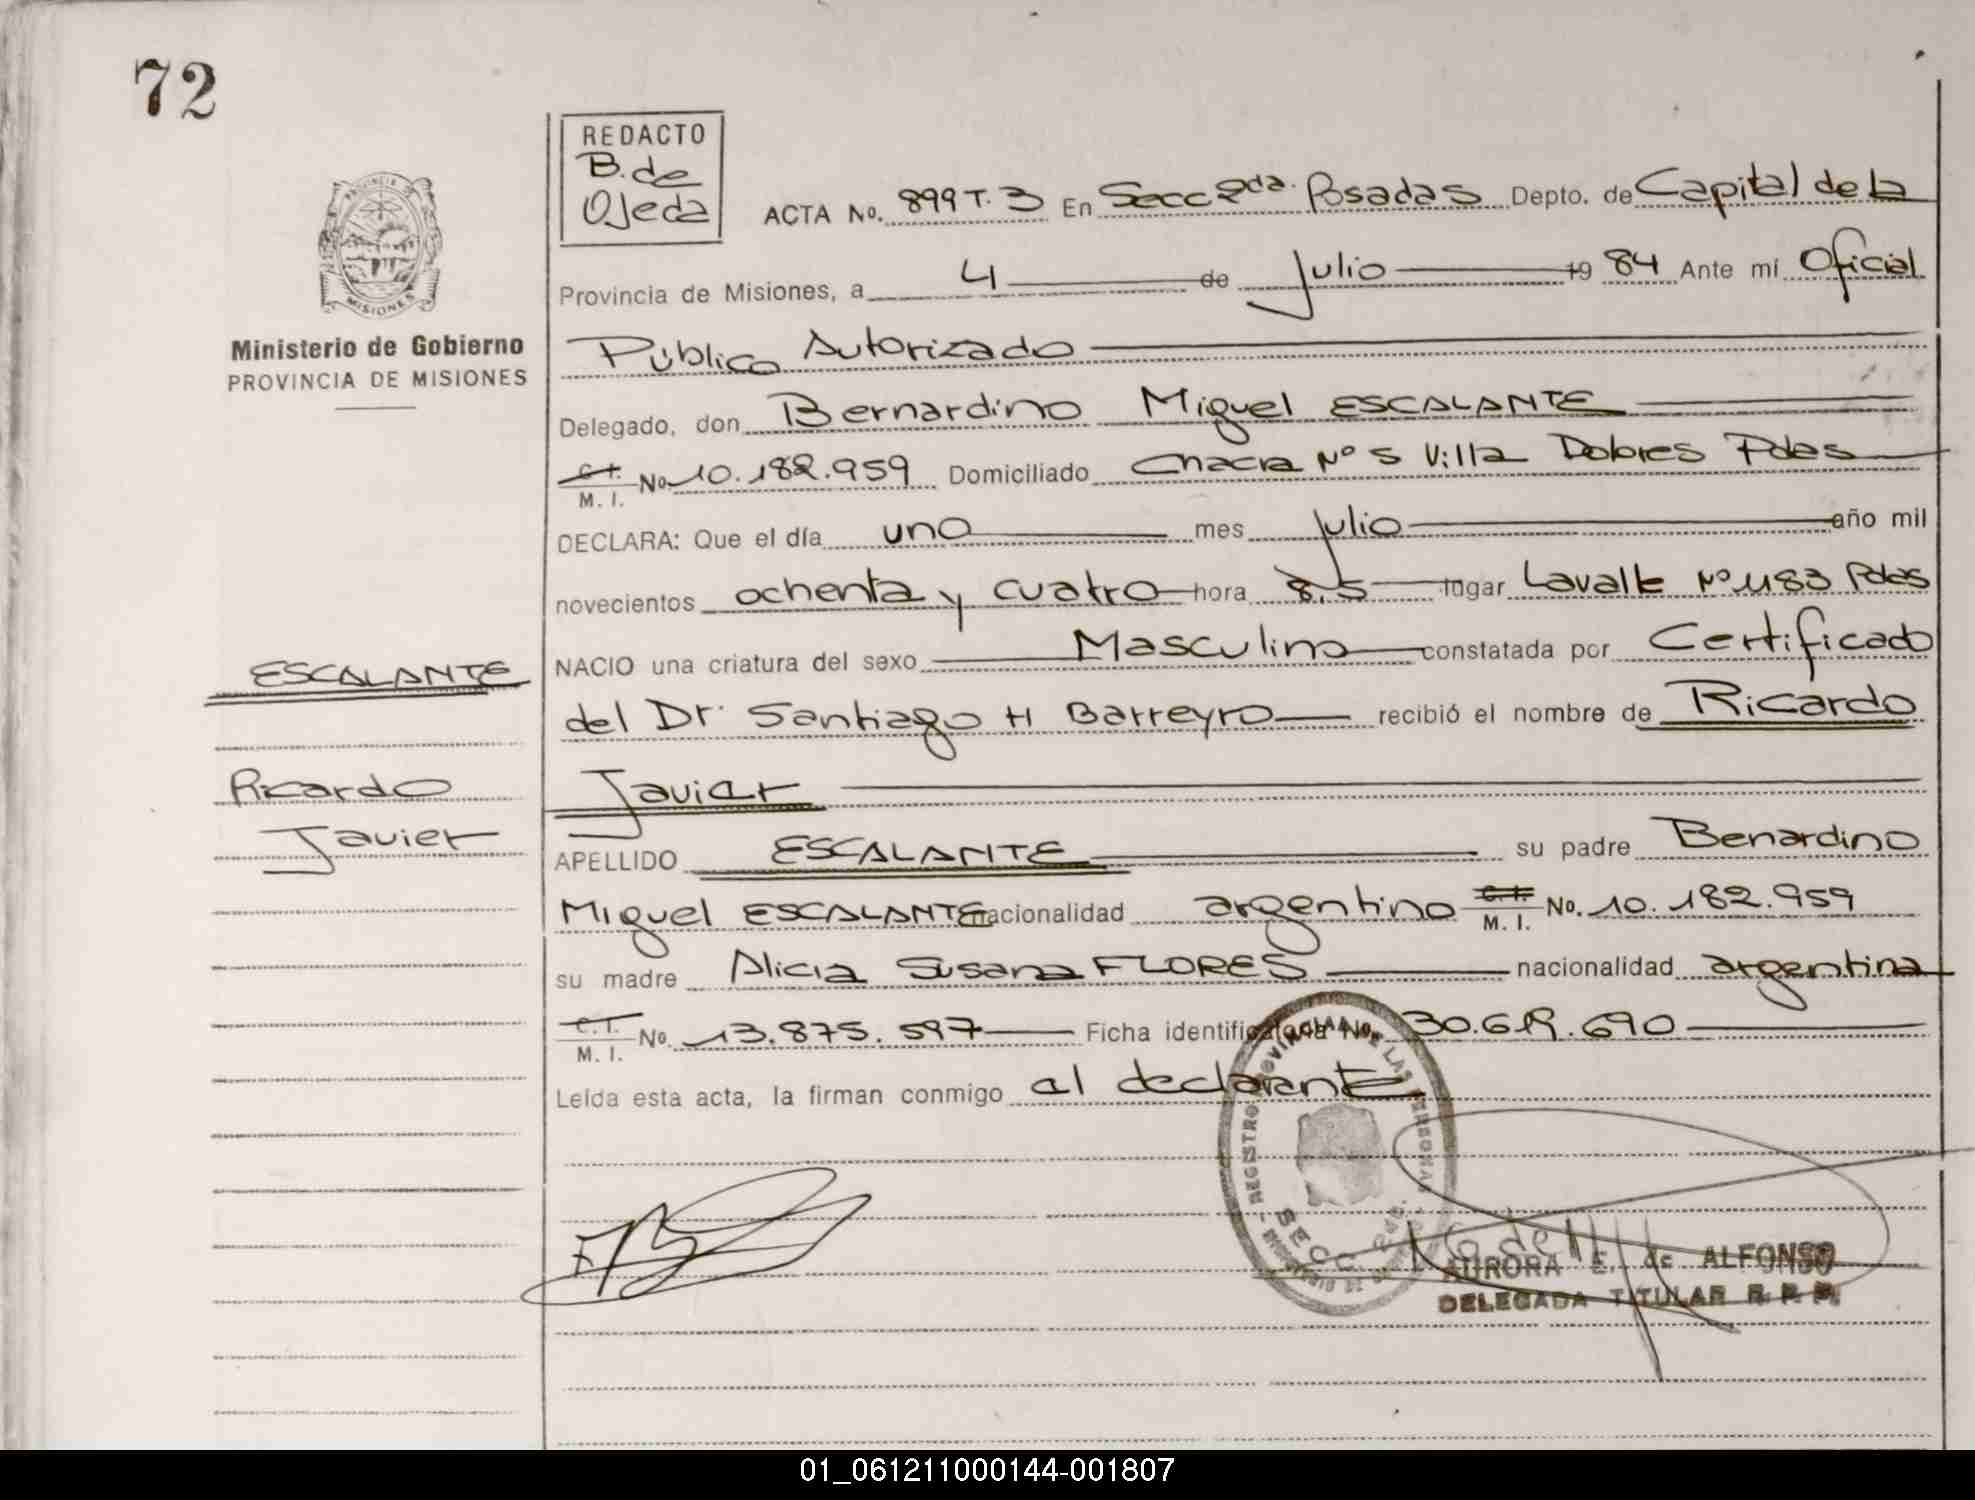 72
REDACTO
B. de
Ojeda
ACTA No. 899 T. 3 En Secc 2da. Posadas Depto. de Capital de la
PROVINCIA DE
MISIONES
Provincia de Misiones, a 4 de Julio 19 84 Ante mí Oficial
Ministerio de Gobierno
PROVINCIA DE MISIONES
Público Autorizado
Delegado, don Bernardino Miguel ESCALANTE
C.I.
M. I. No 10.182.959 Domiciliado Chacra Nº 5 Villa Dolores Pdas
DECLARA: Que el día uno mes Julio año mil
novecientos ochenta y cuatro hora 8,5 lugar Lavalle Nº 1183 Pdas
NACIO una criatura del sexo Masculino constatada por Certificado
del Dr. Santiago H Barreyro recibió el nombre de Ricardo
Javier
ESCALANTE
Ricardo
Javier
APELLIDO ESCALANTE su padre Benardino
Miguel ESCALANTE nacionalidad argentino C.I. M. I. No. 10.182.959
su madre Alicia Susana FLORES nacionalidad argentina
C.I.
M. I. No. 13.875.597 Ficha identificatoria No. 30.619.690
Leída esta acta, la firman conmigo al declarante
REGISTRO PROVINCIAL DE LAS PERSONAS
SECC. 2da.
AURORA E. de ALFONSO
DELEGADA TITULAR R. P. P.
01_061211000144-001807